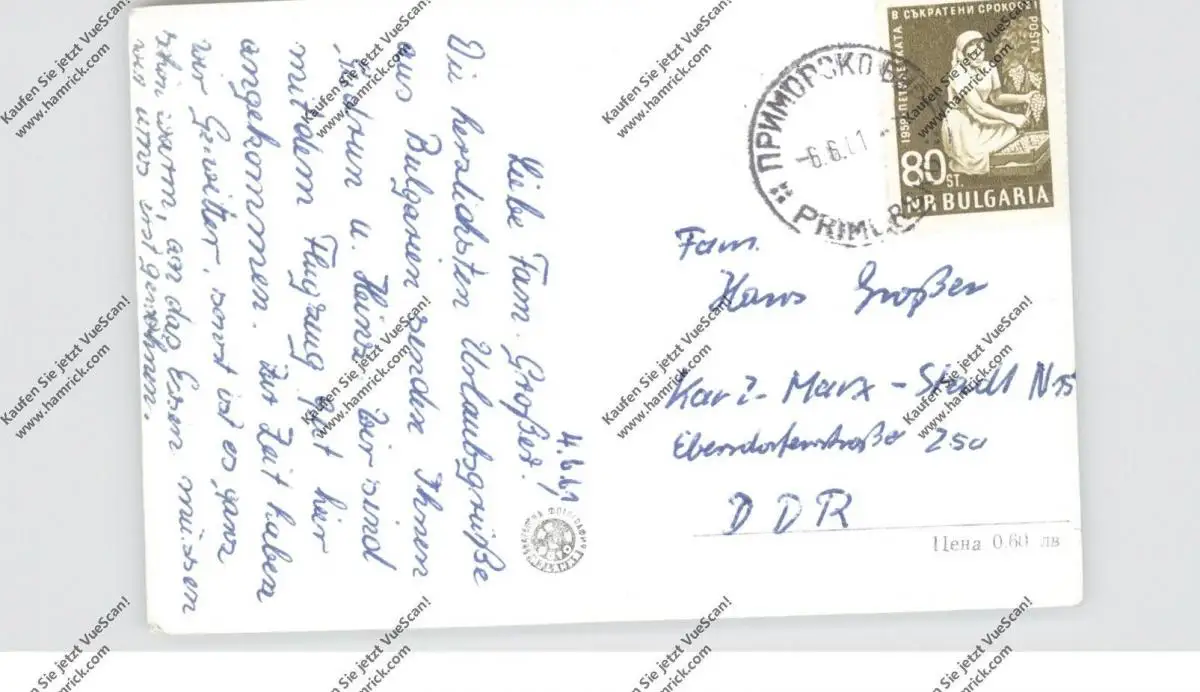 4.6.61
Liebe Fam. Großer!
Die herzlichsten Urlaubsgrüße
aus Bulgarien senden Ihnen
u. Heinz. Wir sind
mit dem Flugzeug gut hier
angekommen. Zur Zeit haben
wir Gewitter, sonst ist es ganz
schön warm, an das Essen müssen
wir uns erst gewöhnen.
В СЪКРАТЕНИ СРОКОВЕ
1959 ПЕТИЛЕТКАТА
POSTA
80 ST.
N.R. BULGARIA
ПРИМОРСКО
-6.6.61
PRIMORSKO
Fam.
Hans Großer
Karl-Marx-Stadt N15
Ebersdorferstraße 250
DDR
Цена 0.60 лв
Kaufen Sie jetzt VueScan!
www.hamrick.com